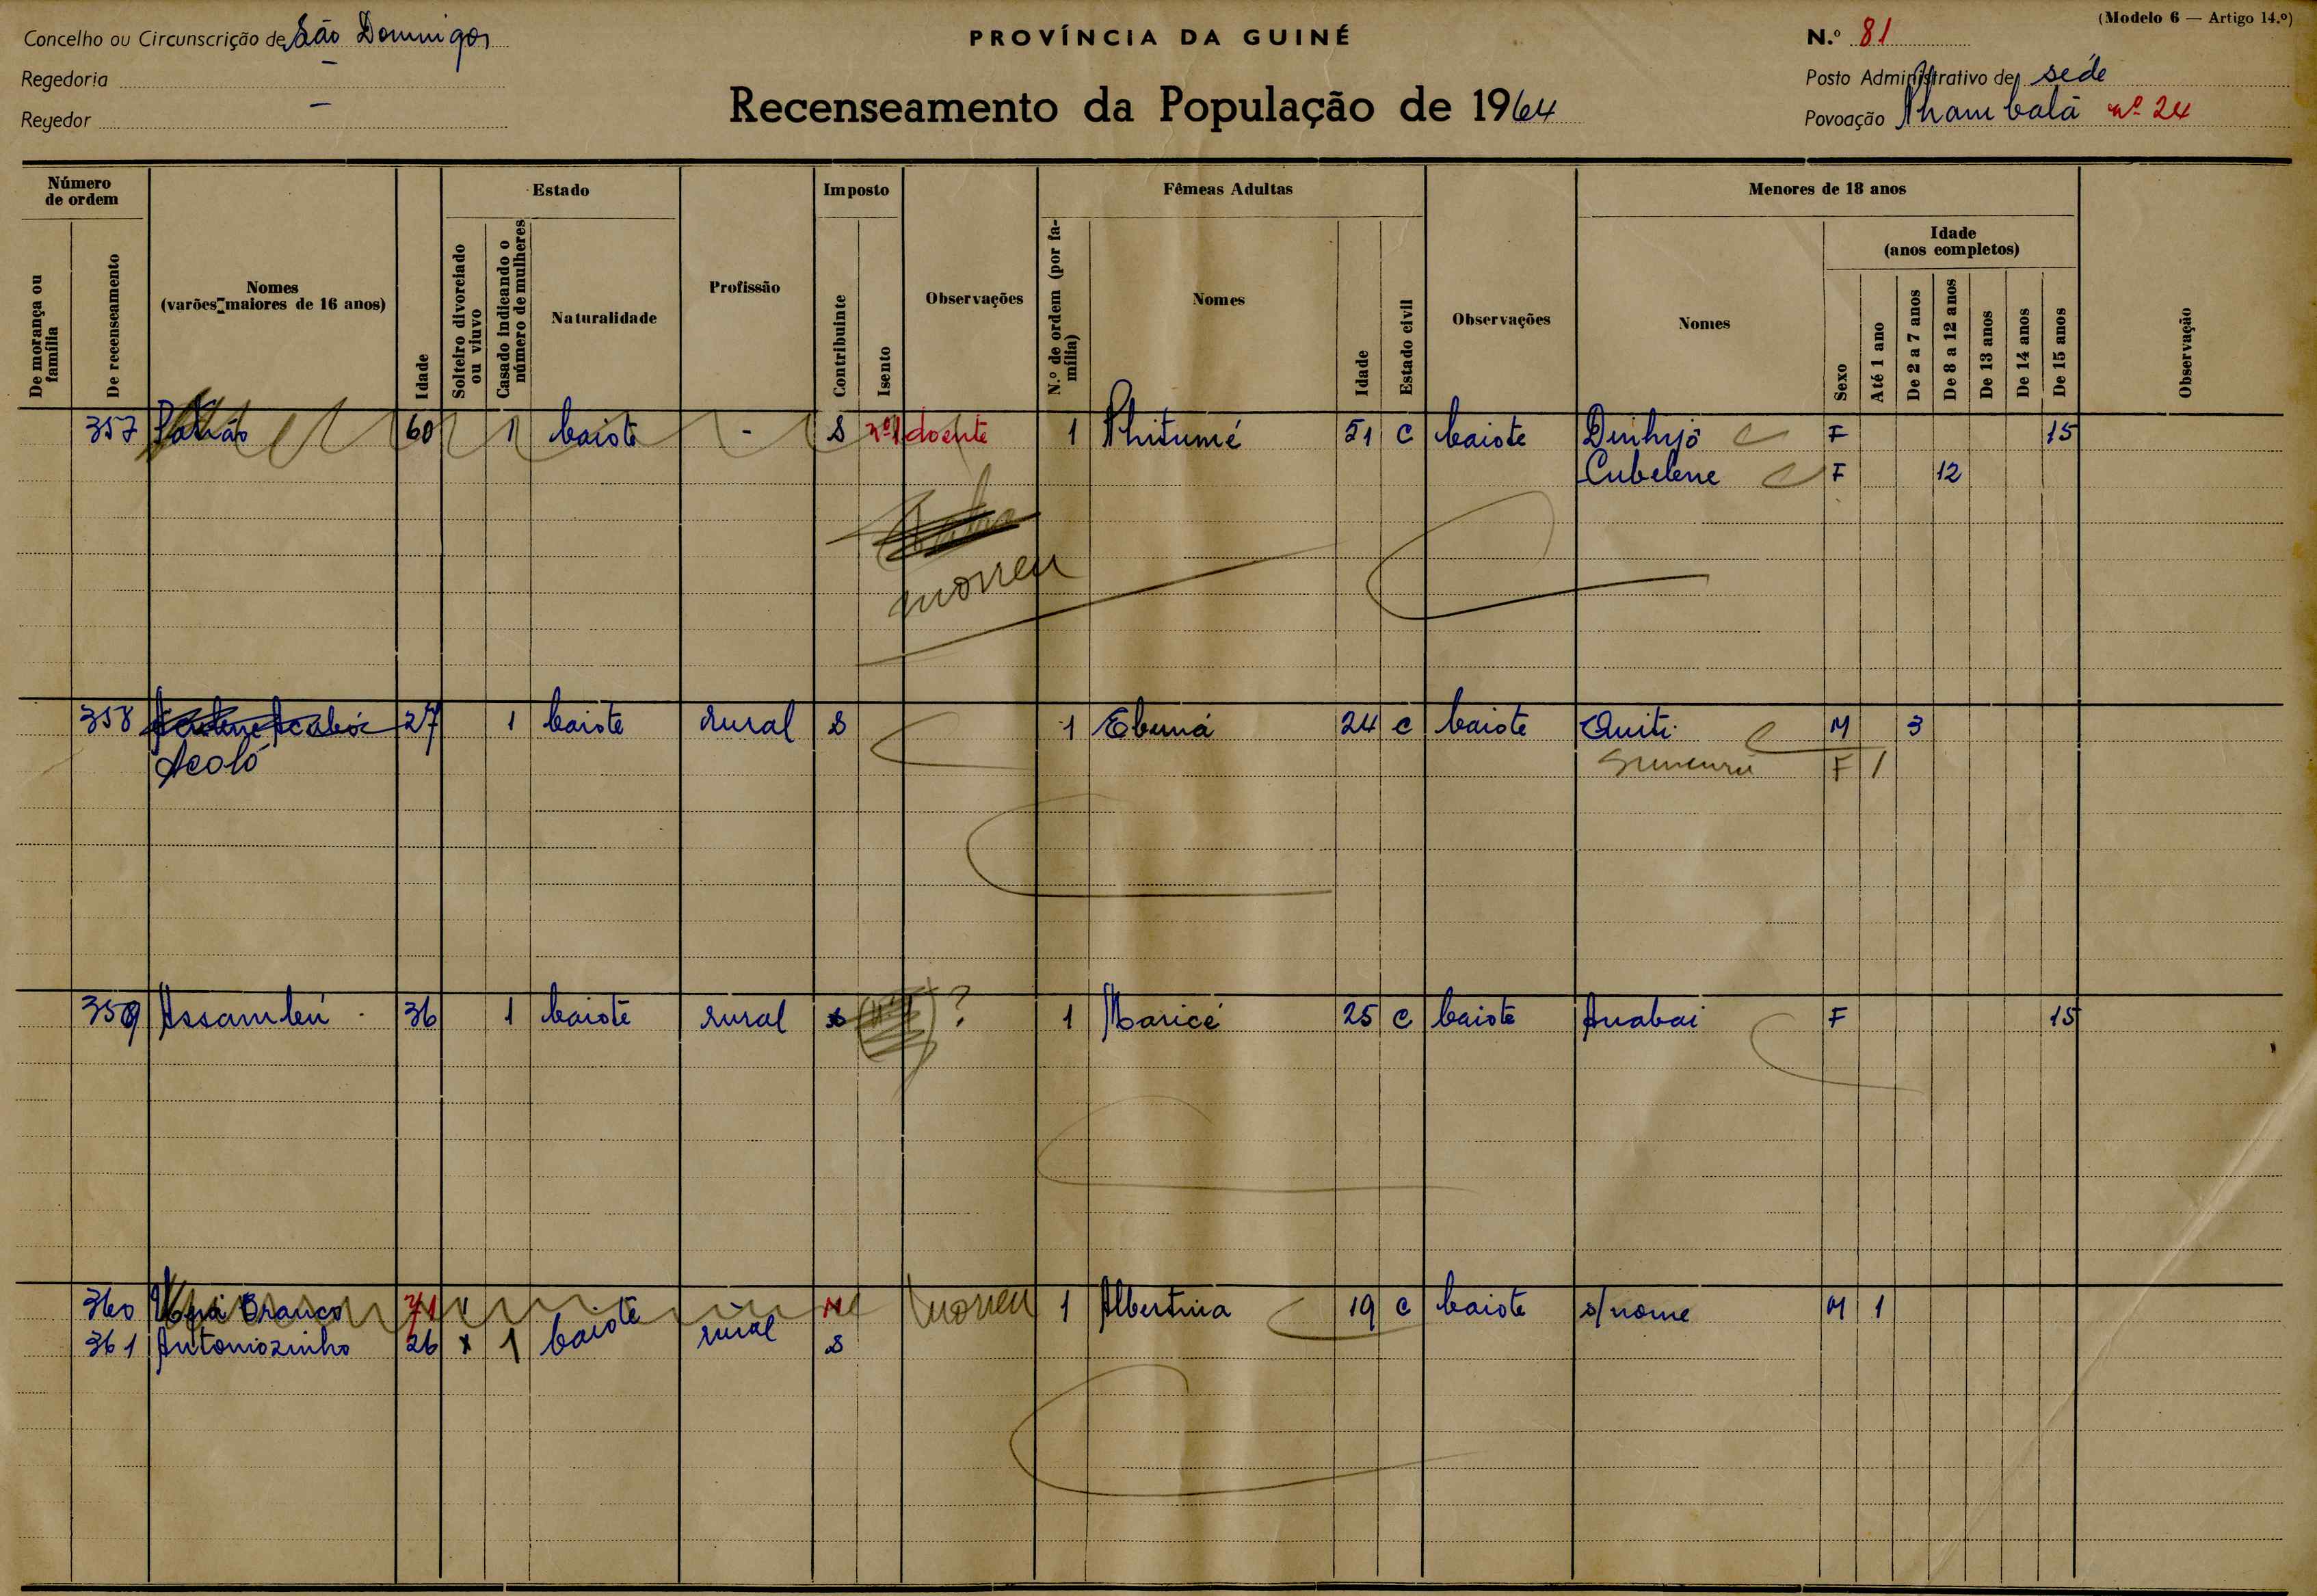 (Modelo 6 — Artigo 14.º)
Concelho ou Circunscrição de São Domingos
PROVÍNCIA DA GUINÉ
N.º 81
Regedoria –
Posto Administrativo de sede
Recenseamento da População de 1964
Regedor –
Povoação Nhambalã nº 24
Número de ordem
De morança ou família
De recenseamento
Nomes
(varões maiores de 16 anos)
Idade
Estado
Solteiro divorciado ou viuvo
Casado indicando o número de mulheres
Naturalidade
Profissão
Imposto
Contribuinte
Isento
Observações
Fêmeas Adultas
N.º de ordem (por família)
Nomes
Idade
Estado civil
Observações
Menores de 18 anos
Nomes
Sexo
Idade
(anos completos)
Até 1 ano
De 2 a 7 anos
De 8 a 12 anos
De 13 anos
De 14 anos
De 15 anos
Observação
357 60 1 baiote - S nº1 doente 1 Nhitumé 51 C baiote Dinhijô F 15
Cubelene F 12
morreu
358 27 1 baiote rural S 1 Ebuná 24 C baiote Quiti M 3
Acoló F 1
359 Assambú 36 1 baiote rural S ? 1 Maricé 25 C baiote Anabai F 15
360 Branco 71 1 M morreu 1 Albertina 19 C baiote s/nome M 1
361 Antoniozinho 26 x 1 baiote rural S